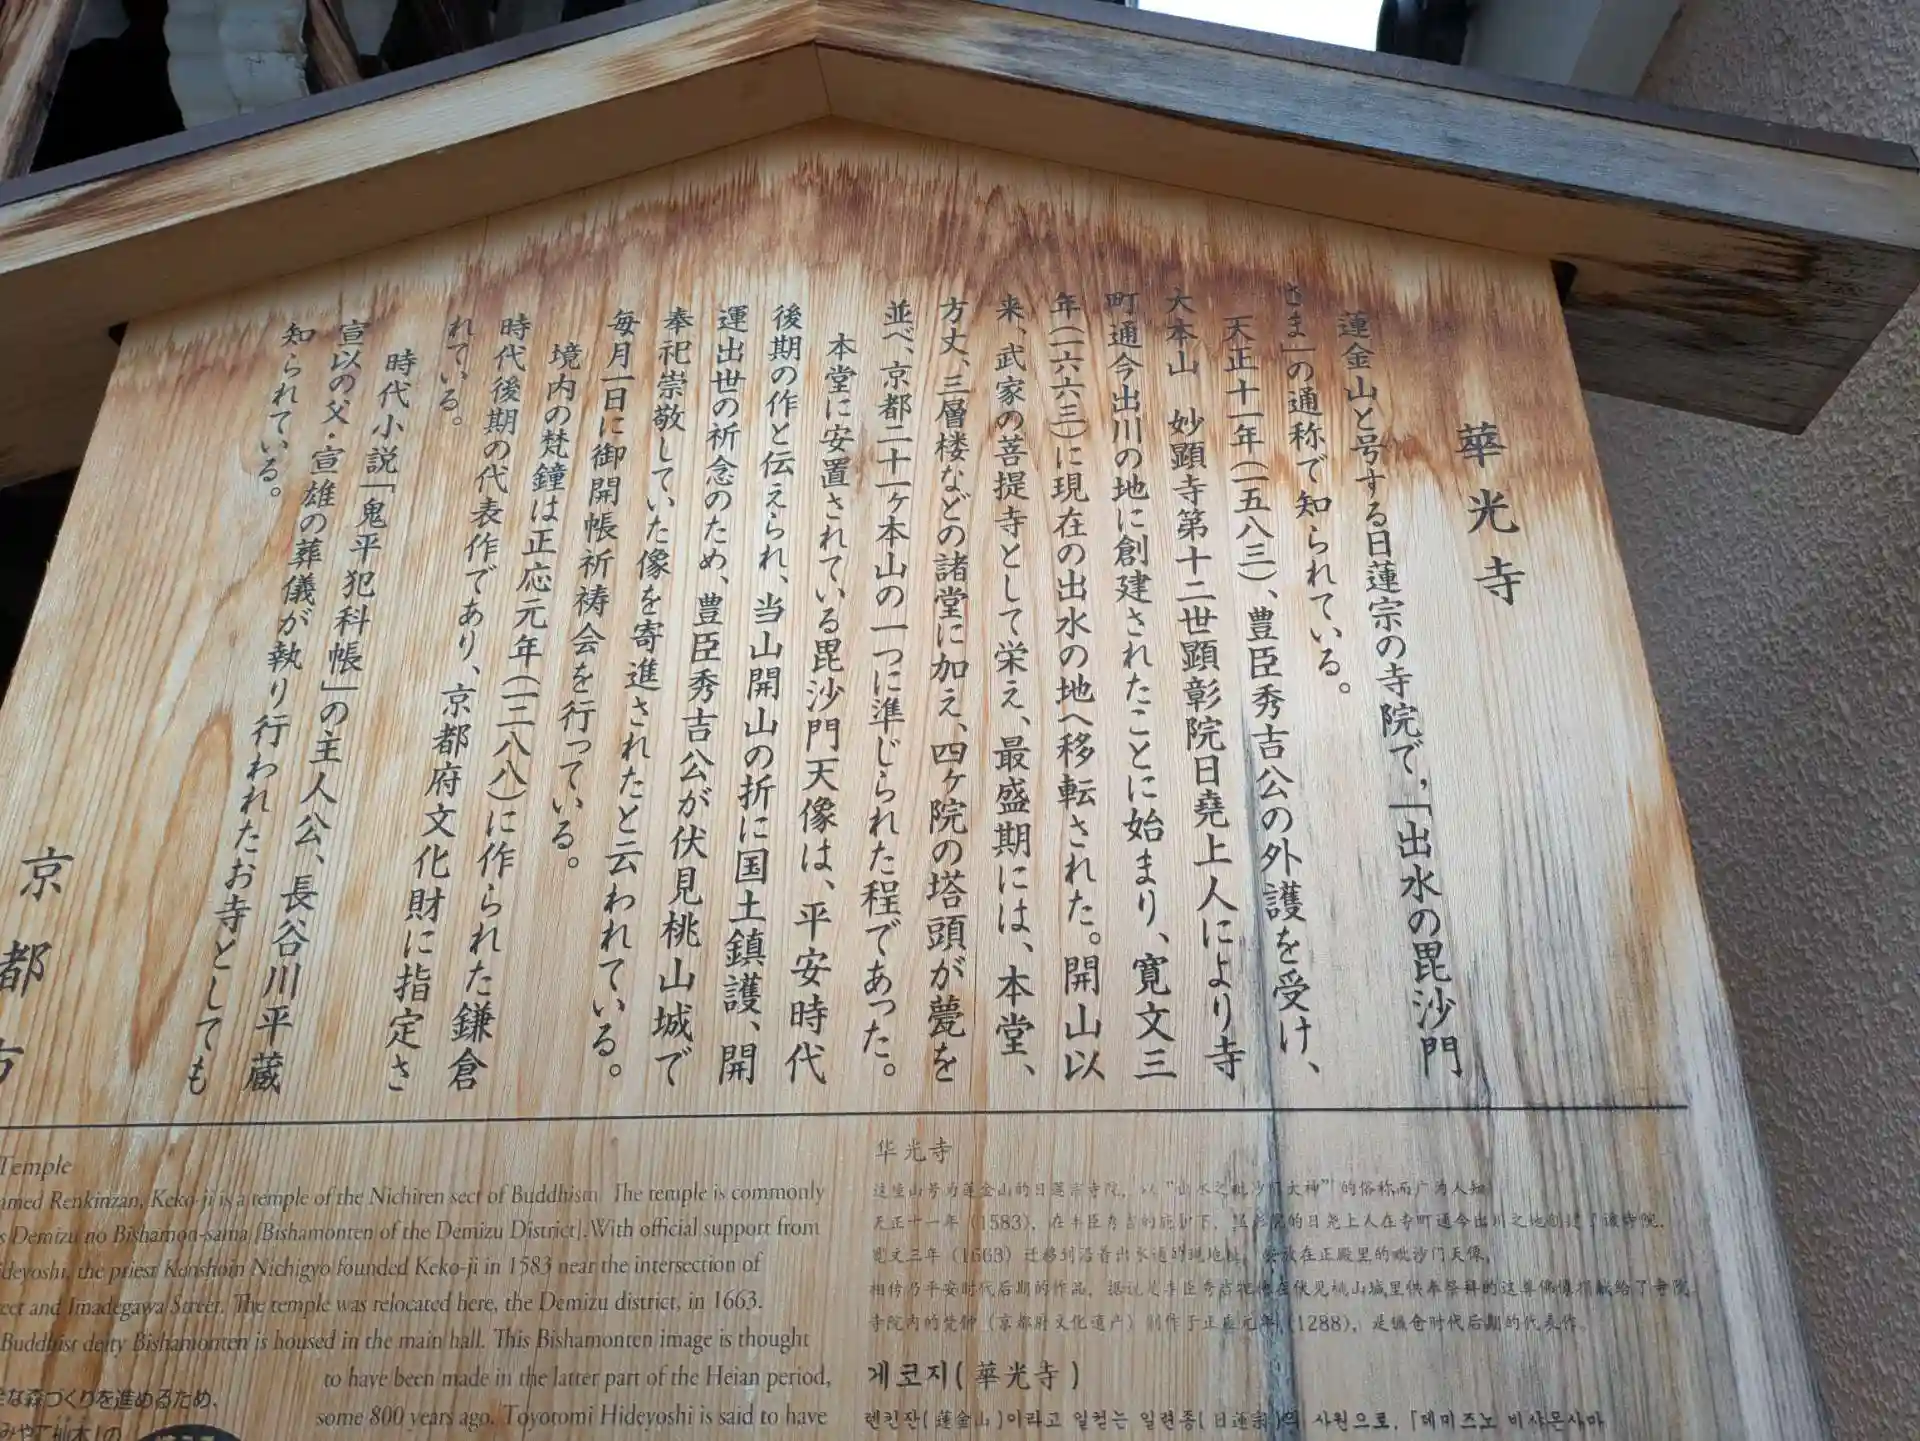 華光寺
蓮金山と号する日蓮宗の寺院で、「出水の毘沙門
さま」の通称で知られている。
天正十一年(一五八三)、豊臣秀吉公の外護を受け、
大本山 妙顕寺第十二世顕彰院日堯上人により寺
町通今出川の地に創建されたことに始まり、寛文三
年(一六六三)に現在の出水の地へ移転された。開山以
来、武家の菩提寺として栄え、最盛期には、本堂、
方丈、三層楼などの諸堂に加え、四ヶ院の塔頭が甍を
並べ、京都二十一ヶ本山の一つに準じられた程であった。
本堂に安置されている毘沙門天像は、平安時代
後期の作と伝えられ、当山開山の折に国土鎮護、開
運出世の祈念のため、豊臣秀吉公が伏見桃山城で
奉祀崇敬していた像を寄進されたと云われている。
毎月一日に御開帳祈祷会を行っている。
境内の梵鐘は正応元年(一二八八)に作られた鎌倉
時代後期の代表作であり、京都府文化財に指定さ
れている。
時代小説「鬼平犯科帳」の主人公、長谷川平蔵
宣以の父・宣雄の葬儀が執り行われたお寺としても
知られている。
京都
Temple
Renkinzan, Keko-ji is a temple of the Nichiren sect of Buddhism. The temple is commonly
Demizu no Bishamon-sama [Bishamonten of the Demizu District]. With official support from
the priest Kenshoin Nichigyo founded Keko-ji in 1583 near the intersection of
and Imadegawa Street. The temple was relocated here, the Demizu district, in 1663.
Buddhist deity Bishamonten is housed in the main hall. This Bishamonten image is thought
to have been made in the latter part of the Heian period,
some 800 years ago. Toyotomi Hideyoshi is said to have
な森づくりを進めるため、
华光寺
这座山号为莲金山的日莲宗寺院，以“出水之毗沙门大神”的俗称而广为人知
天正十一年（1583），在丰臣秀吉的庇护下，的日尧上人在寺町通今出川之地创建了该寺院，
宽文三年（1663）迁移到沿着出水通的现地址，安放在正殿里的毗沙门天像，
相传乃平安时代后期的作品，据说是丰臣秀吉把他在伏见桃山城里供奉祭拜的这尊佛像捐献给了寺院
寺院内的梵钟（京都府文化遗产）制作于正应元年（1288），是镰仓时代后期的代表作。
게코지(華光寺)
렌킨잔(蓮金山)이라고 일컫는 일련종(日蓮宗)의 사원으로,「데미즈노 비샤몬사마